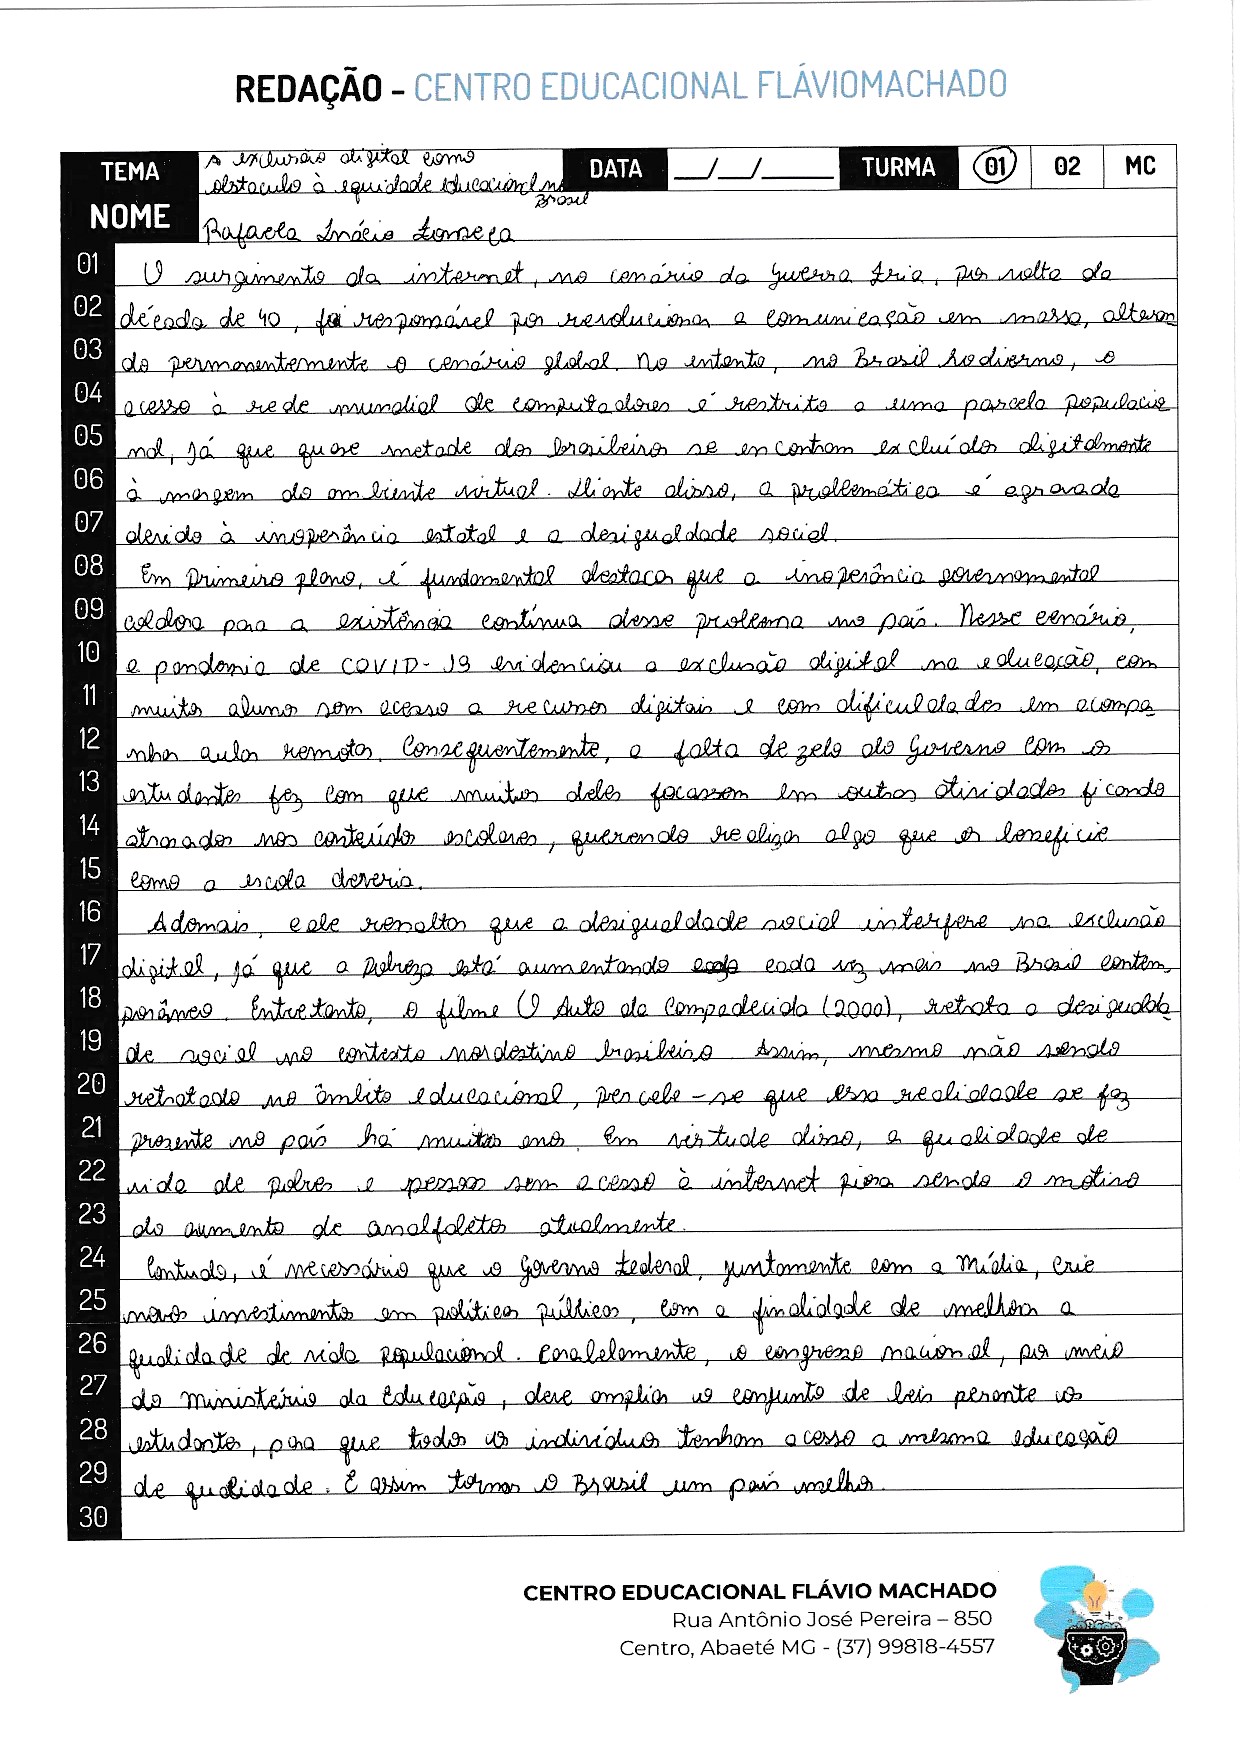 REDAÇÃO - CENTRO EDUCACIONAL FLÁVIOMACHADO
TEMA A exclusão digital como obstaculo à equidade educacional no Brasil DATA __/__/____ TURMA 01 02 MC
NOME Rafaela Inácio Fonseca
01 O surgimento da internet, no cenário da Guerra Fria, por volta da
02 década de 40, foi responsável por revolucionar a comunicação em massa, alteran
03 do permanentemente o cenário global. No entanto, no Brasil hodierno, o
04 acesso à rede mundial de computadores é restrito a uma parcela populacio
05 nal, já que quase metade dos brasileiros se encontram excluídos digitalmente
06 à margem do ambiente virtual. Diante disso, a problemática é agravada
07 devido à inoperância estatal e a desigualdade social.
08 Em primeiro plano, é fundamental destacar que a inoperância governamental
09 coldora para a existência contínua desse problema no país. Nesse cenário,
10 a pandemia de COVID-19 evidenciou a exclusão digital na educação, com
11 muitos alunos sem acesso a recursos digitais e com dificuldades em acompa
12 nhar aulas remotas. Consequentemente, a falta de zelo do Governo com os
13 estudantes fez com que muitos deles focassem em outras atividades ficando
14 atrasados nos conteúdos escolares, querendo realizar algo que os beneficie
15 como a escola deveria.
16 Ademais, cale ressaltar que a desigualdade social interfere na exclusão
17 digital, já que a pobreza está aumentando cada vez mais no Brasil contem
18 porâneo. Entretanto, o filme O Auto da Compadecida (2000), retrata a desigualda
19 de social no contexto nordestino brasileiro. Assim, mesmo não sendo
20 retratado no âmbito educacional, percebe-se que essa realidade se faz
21 presente no país há muitos anos. Em virtude disso, a qualidade de
22 vida de pobres e pessoas sem acesso à internet piora sendo o motivo
23 do aumento de analfabetos atualmente.
24 Contudo, é necessário que o Governo Federal, juntamente com a Mídia, crie
25 novos investimentos em políticas públicas, com a finalidade de melhorar a
26 qualidade de vida populacional. Paralelamente, o congresso nacional, por meio
27 do Ministério da Educação, deve ampliar o conjunto de leis perante os
28 estudantes, para que todos os indivíduos tenham acesso a mesma educação
29 de qualidade. E assim tornar o Brasil um país melhor.
30
CENTRO EDUCACIONAL FLÁVIO MACHADO
Rua Antônio José Pereira – 850
Centro, Abaeté MG - (37) 99818-4557